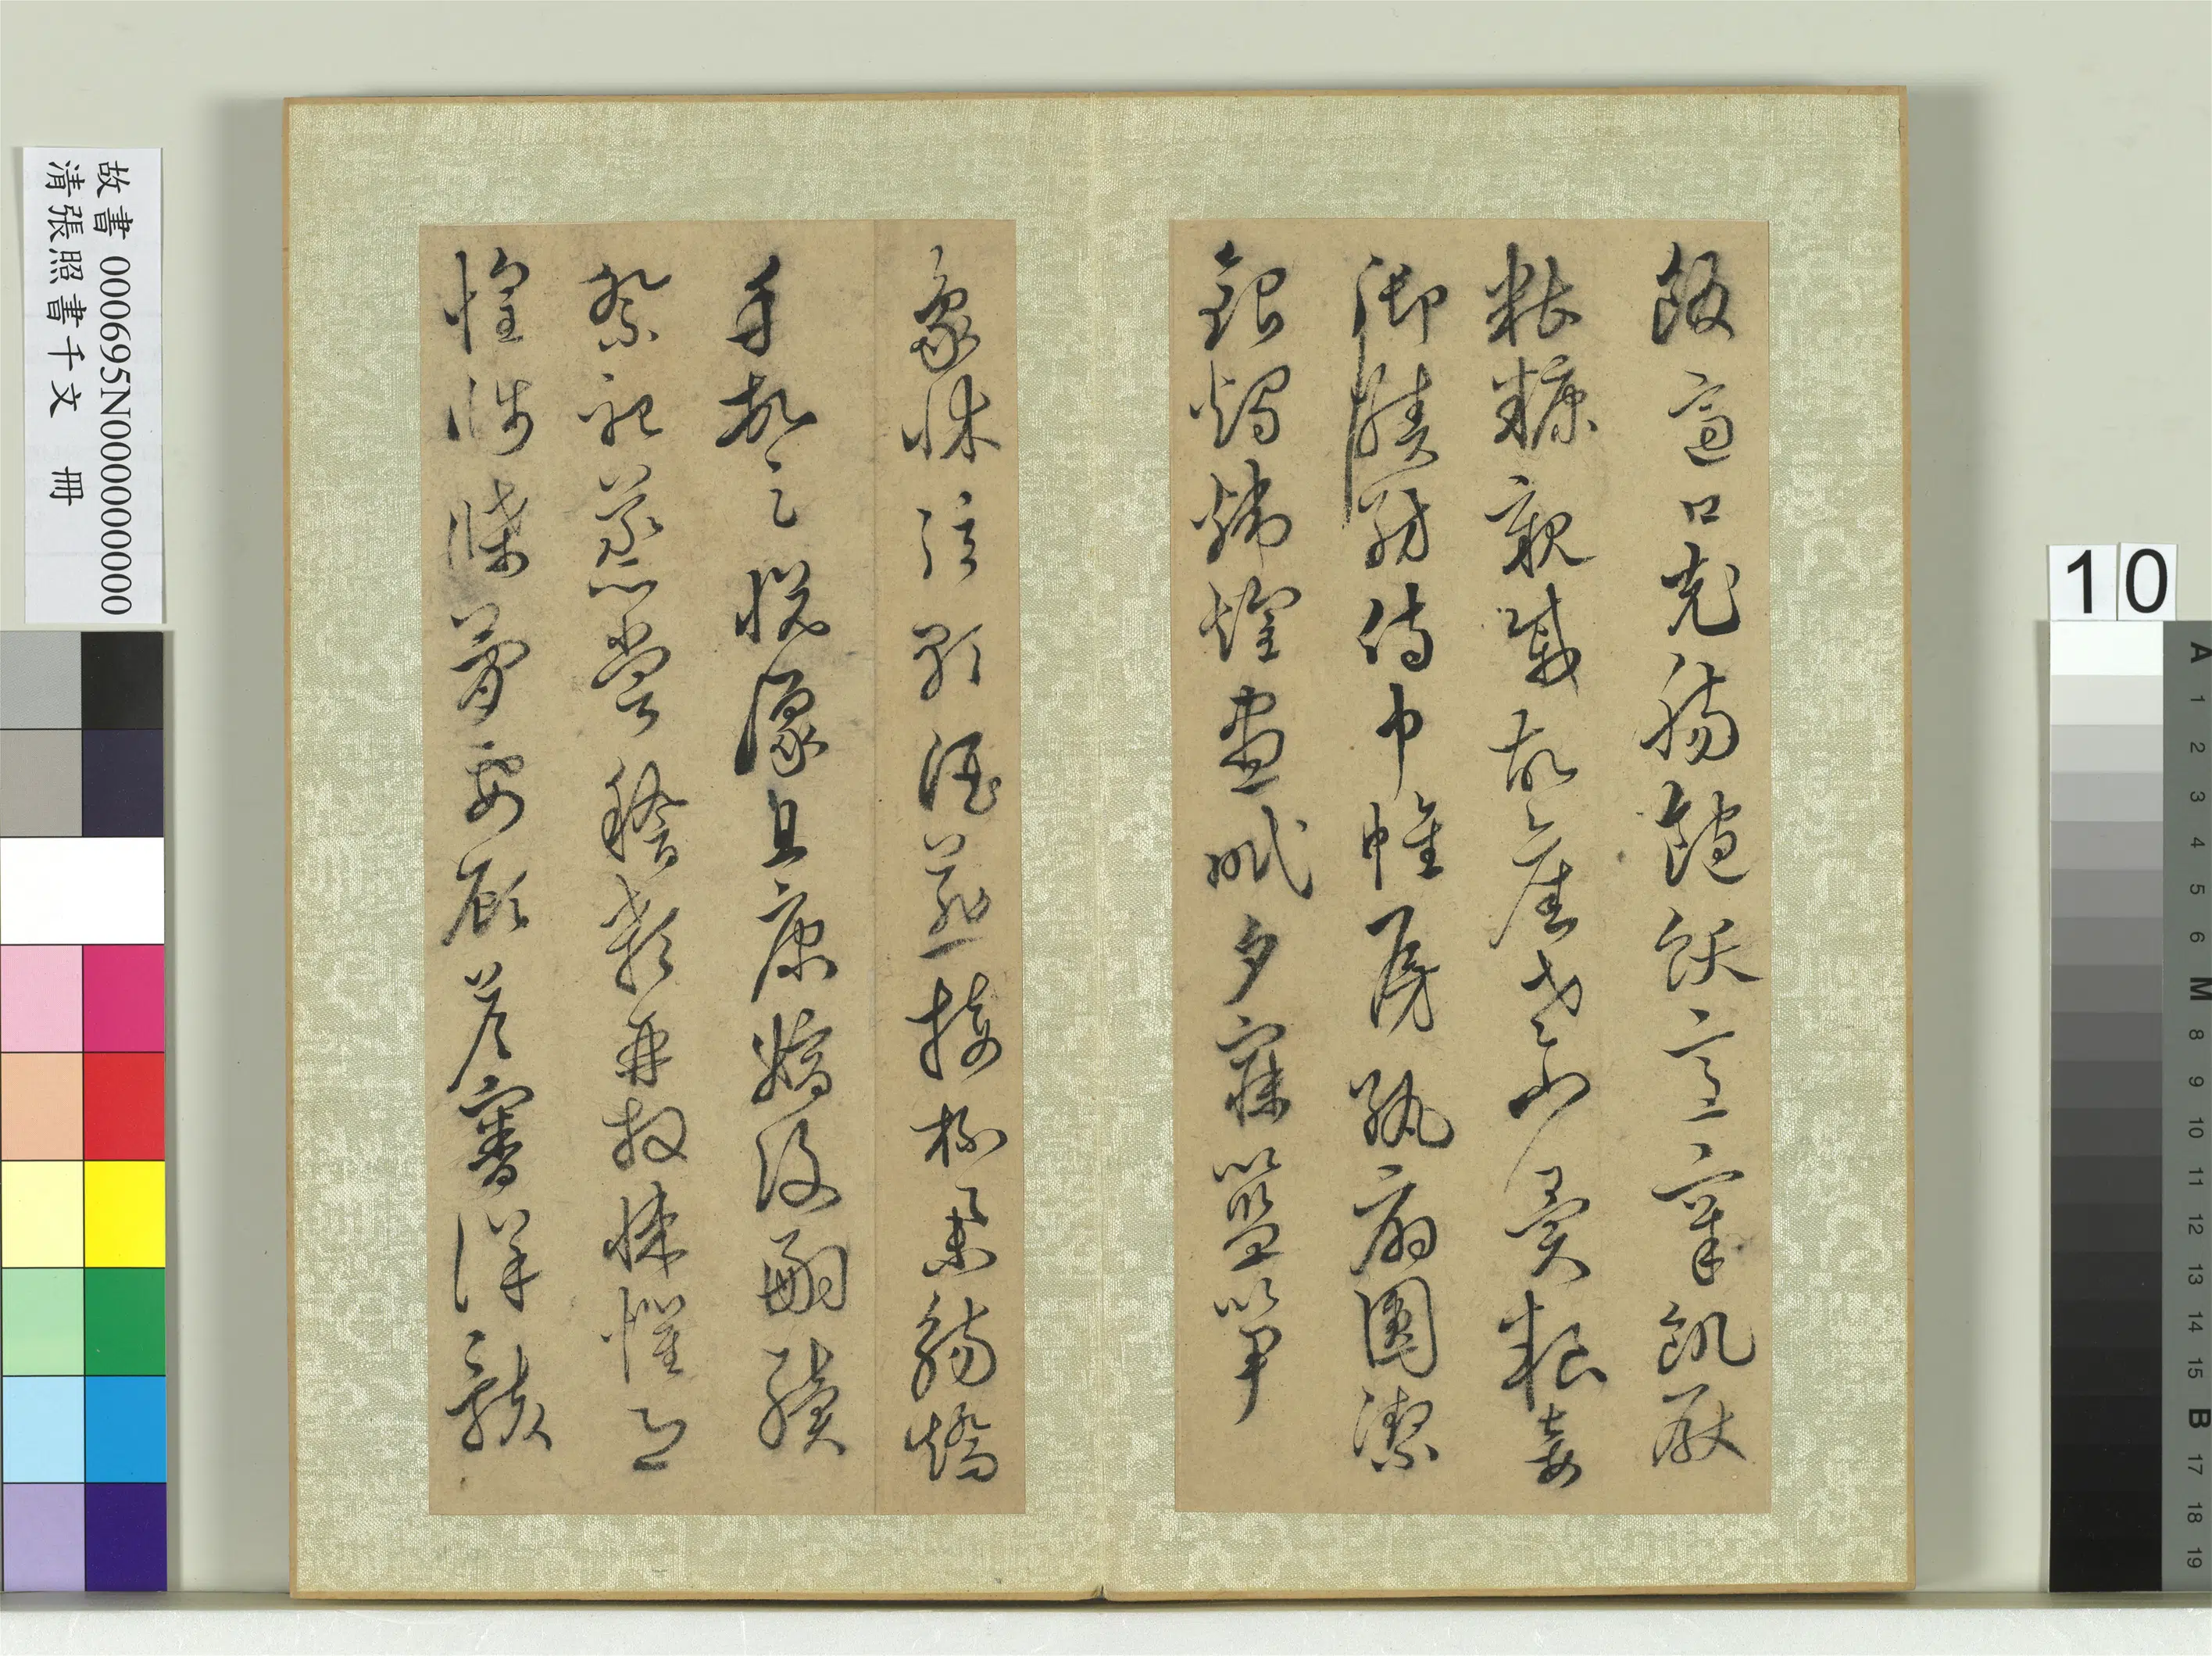 飯適口充腸飽飫烹宰飢厭
糟糠親戚故舊老少異糧妾
御績紡侍巾帷房紈扇圓潔
銀燭煒煌晝眠夕寐籃笋
象床弦歌酒讌接杯舉觴矯
手頓足悅豫且康嫡後嗣續
祭祀蒸嘗稽顙再拜悚懼恐
惶牋牒簡要顧答審詳骸
故書 000695N000000000
清張照書千文 冊
10
A 1 2 3 4 5 6 M 8 9 10 11 12 13 14 15 B 17 18 19